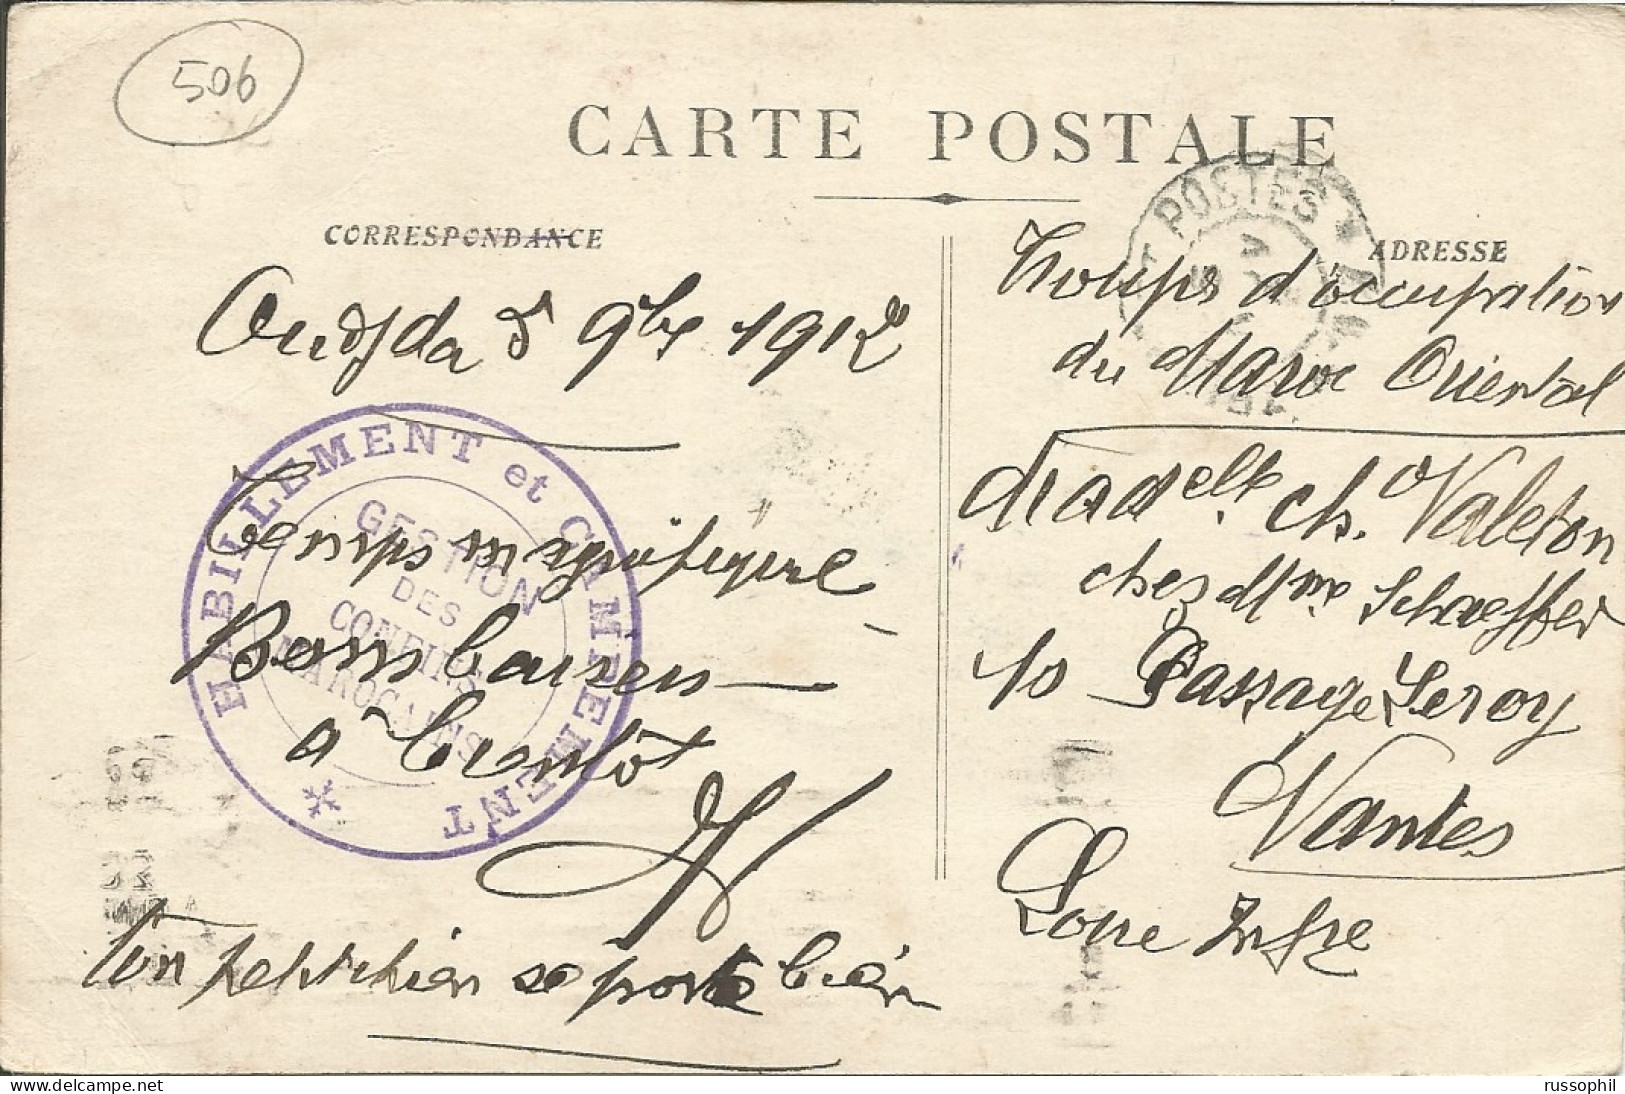 506
CARTE POSTALE
CORRESPONDANCE
ADRESSE
POSTES
Oudjda 5 9bre 1912
Temps magnifique
Bons baisers
à bientôt
Ton petit chien se porte bien
HABILLEMENT et CAMPEMENT
GESTION
DES
CONFINS
MAROCAINS
Troupes d'occupation
du Maroc Oriental
Madelle Ch. Valeton
chez Mme Schaeffer
10 Passage Leroy
Nantes
Loire Infre
russophil